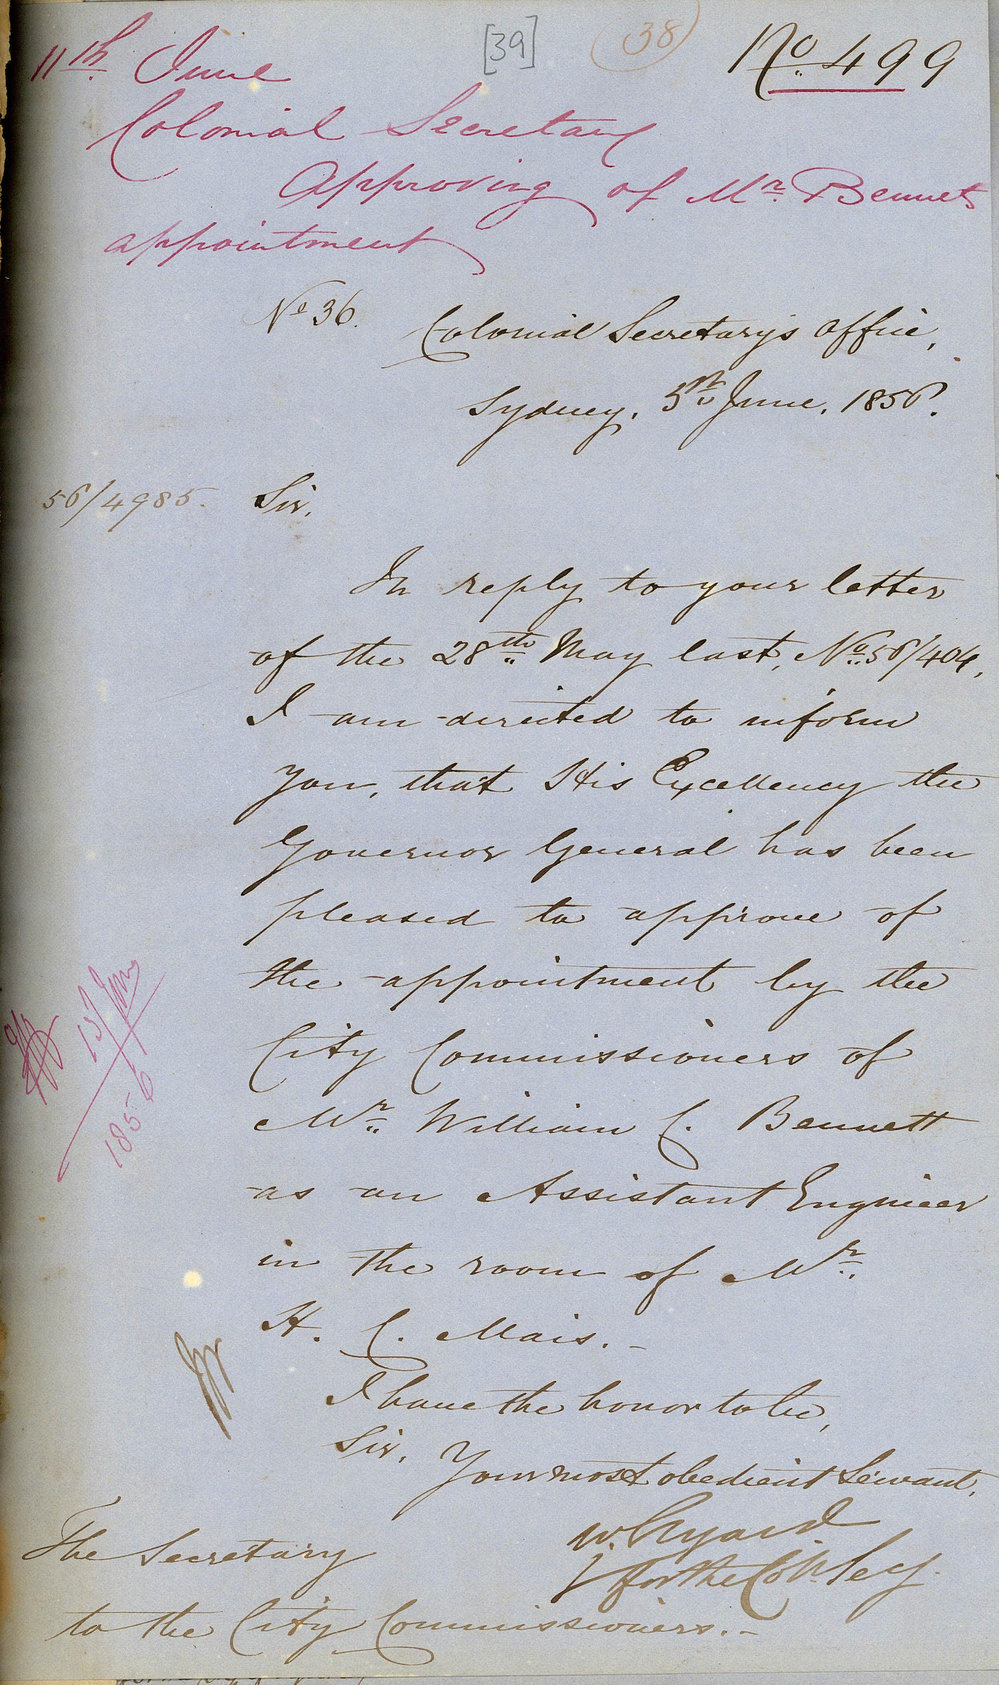 [39]
38
No. 499
11th June
Colonial Secretary
Approving of Mr. Bennets
appointment
No 36.
Colonial Secretary's Office,
Sydney, June, 1856.
56/4985.
Sir,
In reply to your letter
of the 28th May last, No. 56/404,
I am directed to inform
you, that His Excellency the
Governor General has been
pleased to approve of
the appointment by the
City Commissioners of
Mr. William C. Bennett
as an Assistant Engineer
in the room of Mr.
H. C. Mais.-
13/June
1856
I have the honor to be,
Sir,
Your most obedient Servant,
W. Elyard
for the Col. Secy.
The Secretary
to the City Commissioners.-